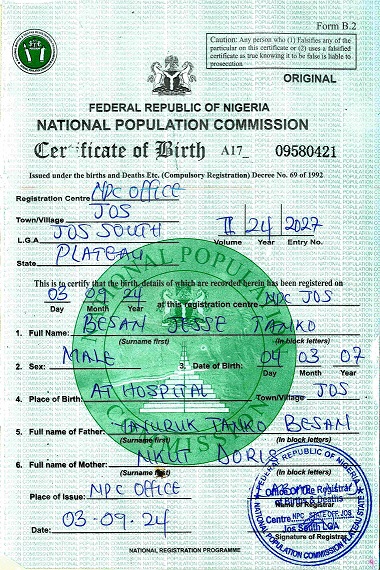 Form B.2
Caution: Any person who (1) Falsifies any of the
particular on this certificate or (2) uses a falsified
certificate as true knowing it to be false is liable to
prosecution
ORIGINAL
FEDERAL REPUBLIC OF NIGERIA
NATIONAL POPULATION COMMISSION
Certificate of Birth A17_ 09580421
Issued under the births and Deaths Etc. (Compulsory Registration) Decree No. 69 of 1992
Registration Centre NPC OFFICE
Town/Village JOS
L.G.A JOS SOUTH
State PLATEAU
II 24 2027
Volume Year Entry No.
This is to certify that the birth, details of which are recorded herein has been registered on
03 09 24 at this registration centre NPC JOS
Day Month Year
1. Full Name: BESAN JESSE TANKO
(Surname first) (In block letters)
2. Sex: MALE 3. Date of Birth: 04 03 07
Day Month Year
4. Place of Birth: AT HOSPITAL Town/Village JOS
5. Full name of Father: TANKO BESAN
(Surname first) (In block letters)
6. Full name of Mother: NKUT DORIS
(Surname first) (In block letters)
Place of Issue: NPC OFFICE
Name of Registrar
Date: 03-09-24
Signature of Registrar
NATIONAL REGISTRATION PROGRAMME
NATIONAL POPULATION COMMISSION
FEDERAL REPUBLIC OF NIGERIA
Office of the Registrar
of Births & Deaths
Centre: NPC STATE OFF. JOS
Jos South LGA
NATIONAL POPULATION COMMISSION PLATEAU STATE